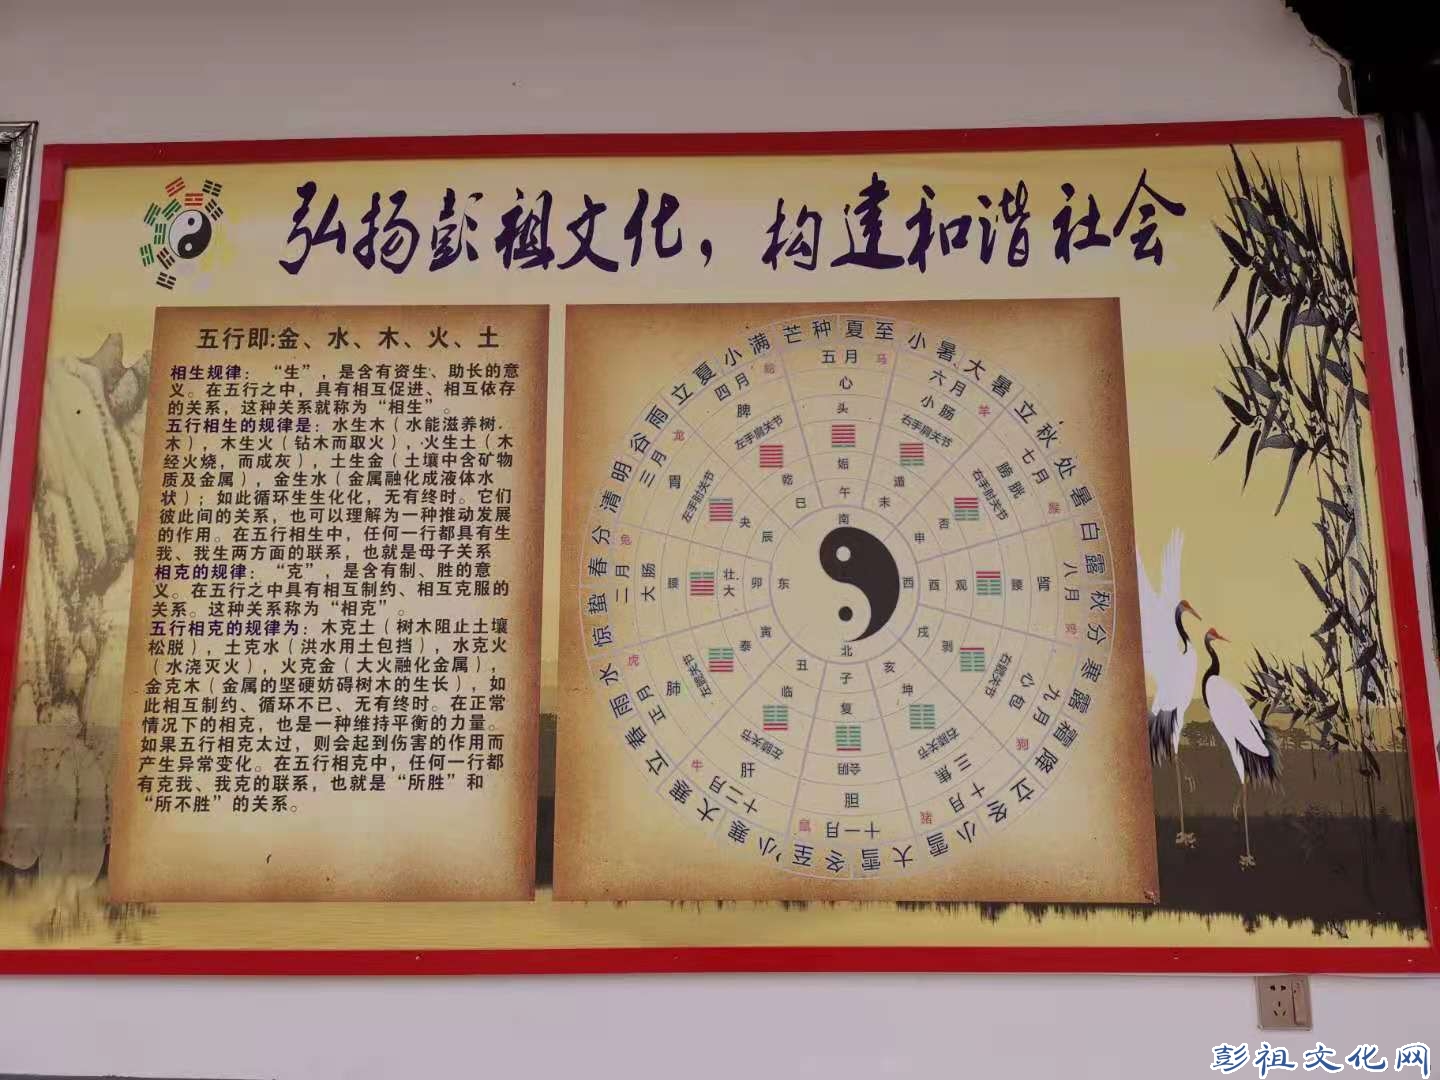 弘扬彭祖文化，构建和谐社会
五行即:金、水、木、火、土
相生规律：“生”，是含有资生、助长的意
义。在五行之中，具有相互促进、相互依存
的关系，这种关系就称为“相生”。
五行相生的规律是：水生木（水能滋养树
木），木生火（钻木而取火），火生土（木
经火烧，而成灰），土生金（土壤中含矿物
质及金属），金生水（金属融化成液体水
状）；如此循环生生化化，无有终时。它们
彼此间的关系，也可以理解为一种推动发展
的作用。在五行相生中，任何一行都具有生
我、我生两方面的联系，也就是母子关系
相克的规律：“克”，是含有制、胜的意
义。在五行之中具有相互制约、相互克服的
关系。这种关系称为“相克”。
五行相克的规律为：木克土（树木阻止土壤
松脱），土克水（洪水用土包挡），水克火
（水浇灭火），火克金（大火融化金属），
金克木（金属的坚硬妨碍树木的生长），如
此相互制约、循环不已、无有终时。在正常
情况下的相克，也是一种维持平衡的力量。
如果五行相克太过，则会起到伤害的作用而
产生异常变化。在五行相克中，任何一行都
有克我、我克的联系，也就是“所胜”和
“所不胜”的关系。
芒种 夏至 小暑 大暑 立秋 处暑 白露 秋分 寒露 霜降 立冬 小雪 大雪 冬至 小寒 大寒 立春 雨水 惊蛰 春分 清明 谷雨 立夏 小满
五月 马 心 头 姤 午 南
六月 羊 小肠 右手肩关节 遁 未
七月 猴 膀胱 右手肘关节 否 申
八月 鸡 肾 腰 观 酉 西
九月 狗 心包 右髋关节 剥 戌
十月 猪 三焦 右膝关节 坤 亥
十一月 鼠 胆 会阴 复 子 北
十二月 牛 肝 左膝关节 临 丑
正月 虎 肺 左髋关节 泰 寅
二月 兔 大肠 腰 大壮 卯 东
三月 龙 胃 左手肘关节 央 辰
四月 蛇 脾 左手肩关节 乾 巳
彭祖文化网